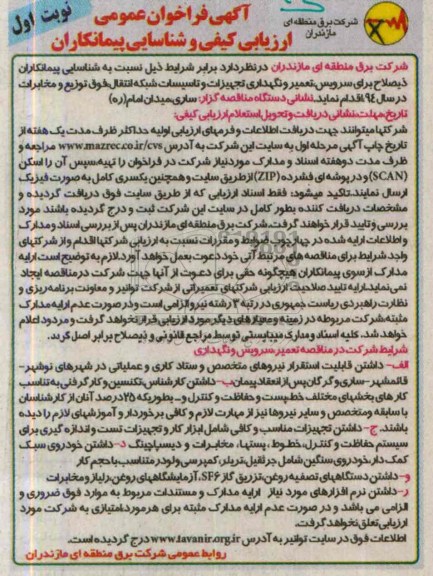 نوبت اول
آگهی فراخوان عمومی
ارزیابی کیفی و شناسایی پیمانکاران
شرکت برق منطقه ای
مازندران
شرکت برق منطقه ای مازندران درنظردارد برابر شرایط ذیل نسبت به شناسایی پیمانکاران
ذیصلاح برای سرویس،تعمیر و نگهداری تجهیزات و تاسیسات شبکه انتقال،فوق توزیع و مخابرات
در سال ۹۴ اقدام نماید.نشانی دستگاه مناقصه گزار: ساری،میدان امام(ره)
تاریخ،مهلت،نشانی دریافت وتحویل استعلام ارزیابی کیفی:
شرکتها میتوانند جهت دریافت اطلاعات و فرمهای ارزیابی اولیه حداکثر ظرف مدت یک هفته از
تاریخ چاپ آگهی مرحله اول به سایت این شرکت به آدرس www.mazrec.co.ir/cvs مراجعه و
ظرف مدت دوهفته اسناد و مدارک موردنیاز شرکت در فراخوان را تهیه،سپس آن را اسکن
(SCAN) و در پوشه ای فشرده (ZIP) ازطریق سایت و همچنین یکسری کامل به صورت فیزیک
ارسال نمایند.تاکید میشود: فقط اسناد ارزیابی که از طریق سایت فوق دریافت گردیده و
مشخصات دریافت کننده بطور کامل در سایت این شرکت ثبت و درج گردیده باشند مورد
بررسی و تایید قرار خواهند گرفت.شرکت برق منطقه ای مازندران پس از بررسی اسناد و مدارک
و اطلاعات ارایه شده در چهارچوب ضوابط و مقررات نسبت به ارزیابی شرکتها اقدام و از شرکتهای
واجد شرایط برای مناقصه های مرتبط آتی خود دعوت بعمل خواهد آورد.لازم به توضیح است ارایه
مدارک ازسوی پیمانکاران هیچگونه حقی برای دعوت از آنها جهت شرکت درمناقصه ایجاد
نمی نماید.ارایه تایید صلاحیت ارزیابی شرکتهای تعمیراتی از شرکت توانیر و معاونت برنامه ریزی و
نظارت راهبردی ریاست جمهوری در رتبه ۳ رشته نیرو الزامی است ودر صورت عدم ارایه مدارک
مثبته،شرکت مربوطه در زمینه و معیارهای دیگر مورد ارزیابی قرار نخواهد گرفت و مردود اعلام
خواهد شد. کلیه اسناد و مدارک میبایستی توسط مراجع قانونی و ذیصلاح برابر اصل گردد.
شرایط شرکت در مناقصه تعمیر،سرویس و نگهداری
الف- داشتن قابلیت استقرار نیروهای متخصص و ستاد کاری و عملیاتی در شهرهای نوشهر-
قائمشهر-ساری و گرگان پس از انعقاد پیمان ب- داشتن کارشناس،تکنسین و کارگر فنی به تناسب
کارهای بخشهای مختلف خط،پست و حفاظت و کنترل و... بطوریکه ۲۵درصد آنان از کارشناسان
با سابقه و متخصص و سایر نیروها نیز از مهارت لازم و کافی برخوردار و آموزشهای لازم را دیده
باشند. ج- داشتن تجهیزات مناسب و کافی شامل ابزار کار و تجهیزات تست و اندازه گیری برای
سیستم حفاظت و کنترل،خطوط، پستها، مخابرات و دیسپاچینگ د- داشتن خودروی سبک
کمک دار،خودروی سنگین شامل جرثقیل،تریلر،کمپرسی ولودر متناسب با حجم کار
و- داشتن دستگاههای تصفیه روغن،تزریق گاز SF6، آزمایشگاههای روغن،رلیاژ و مخابرات
ر- داشتن نرم افزارهای مورد نیاز ارایه مدارک و مستندات مربوط به موارد فوق ضروری و
الزامی می باشد و در صورت عدم ارایه مدارک مثبته برای هرمورد،امتیازی به شرکت مورد
ارزیابی تعلق نخواهد گرفت.
اطلاعات فوق در سایت توانیر به آدرس www.tavanir.org.ir درج گردیده است.
روابط عمومی شرکت برق منطقه ای مازندران